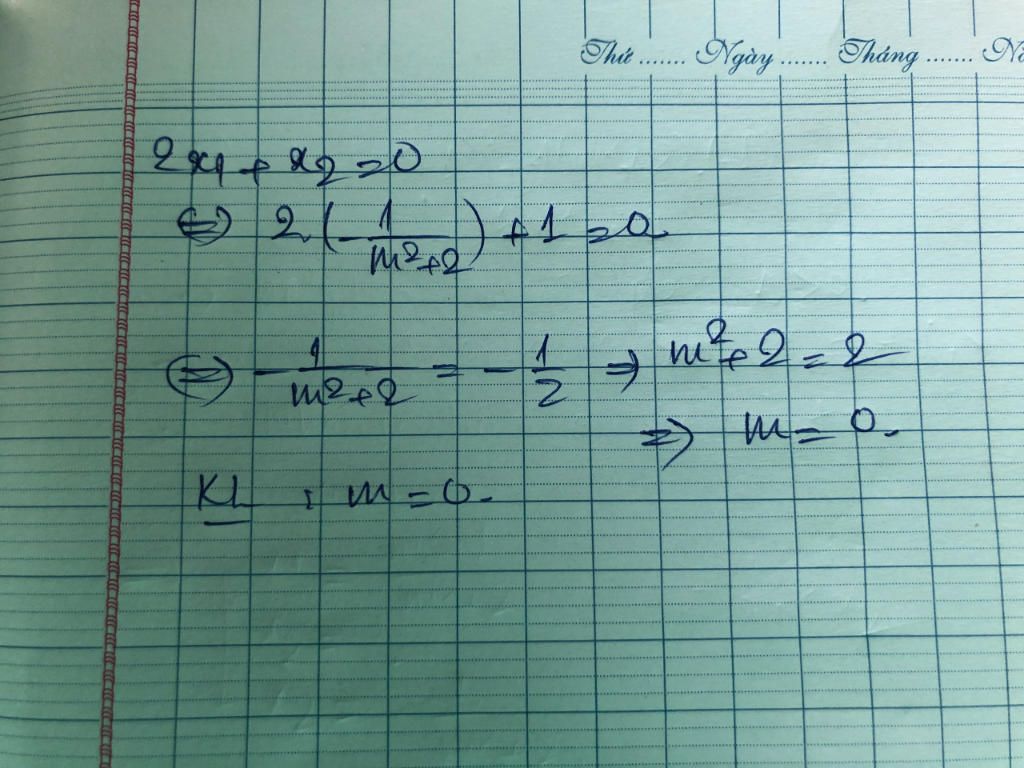 Thứ ....... Ngày ....... Tháng ....... Nă
2x1 + x2 = 0
⇔ 2(-1/(m²+2)) + 1 = 0
⇔ -1/(m²+2) = -1/2 ⇒ m²+2 = 2
⇒ m = 0.
KL : m = 0.